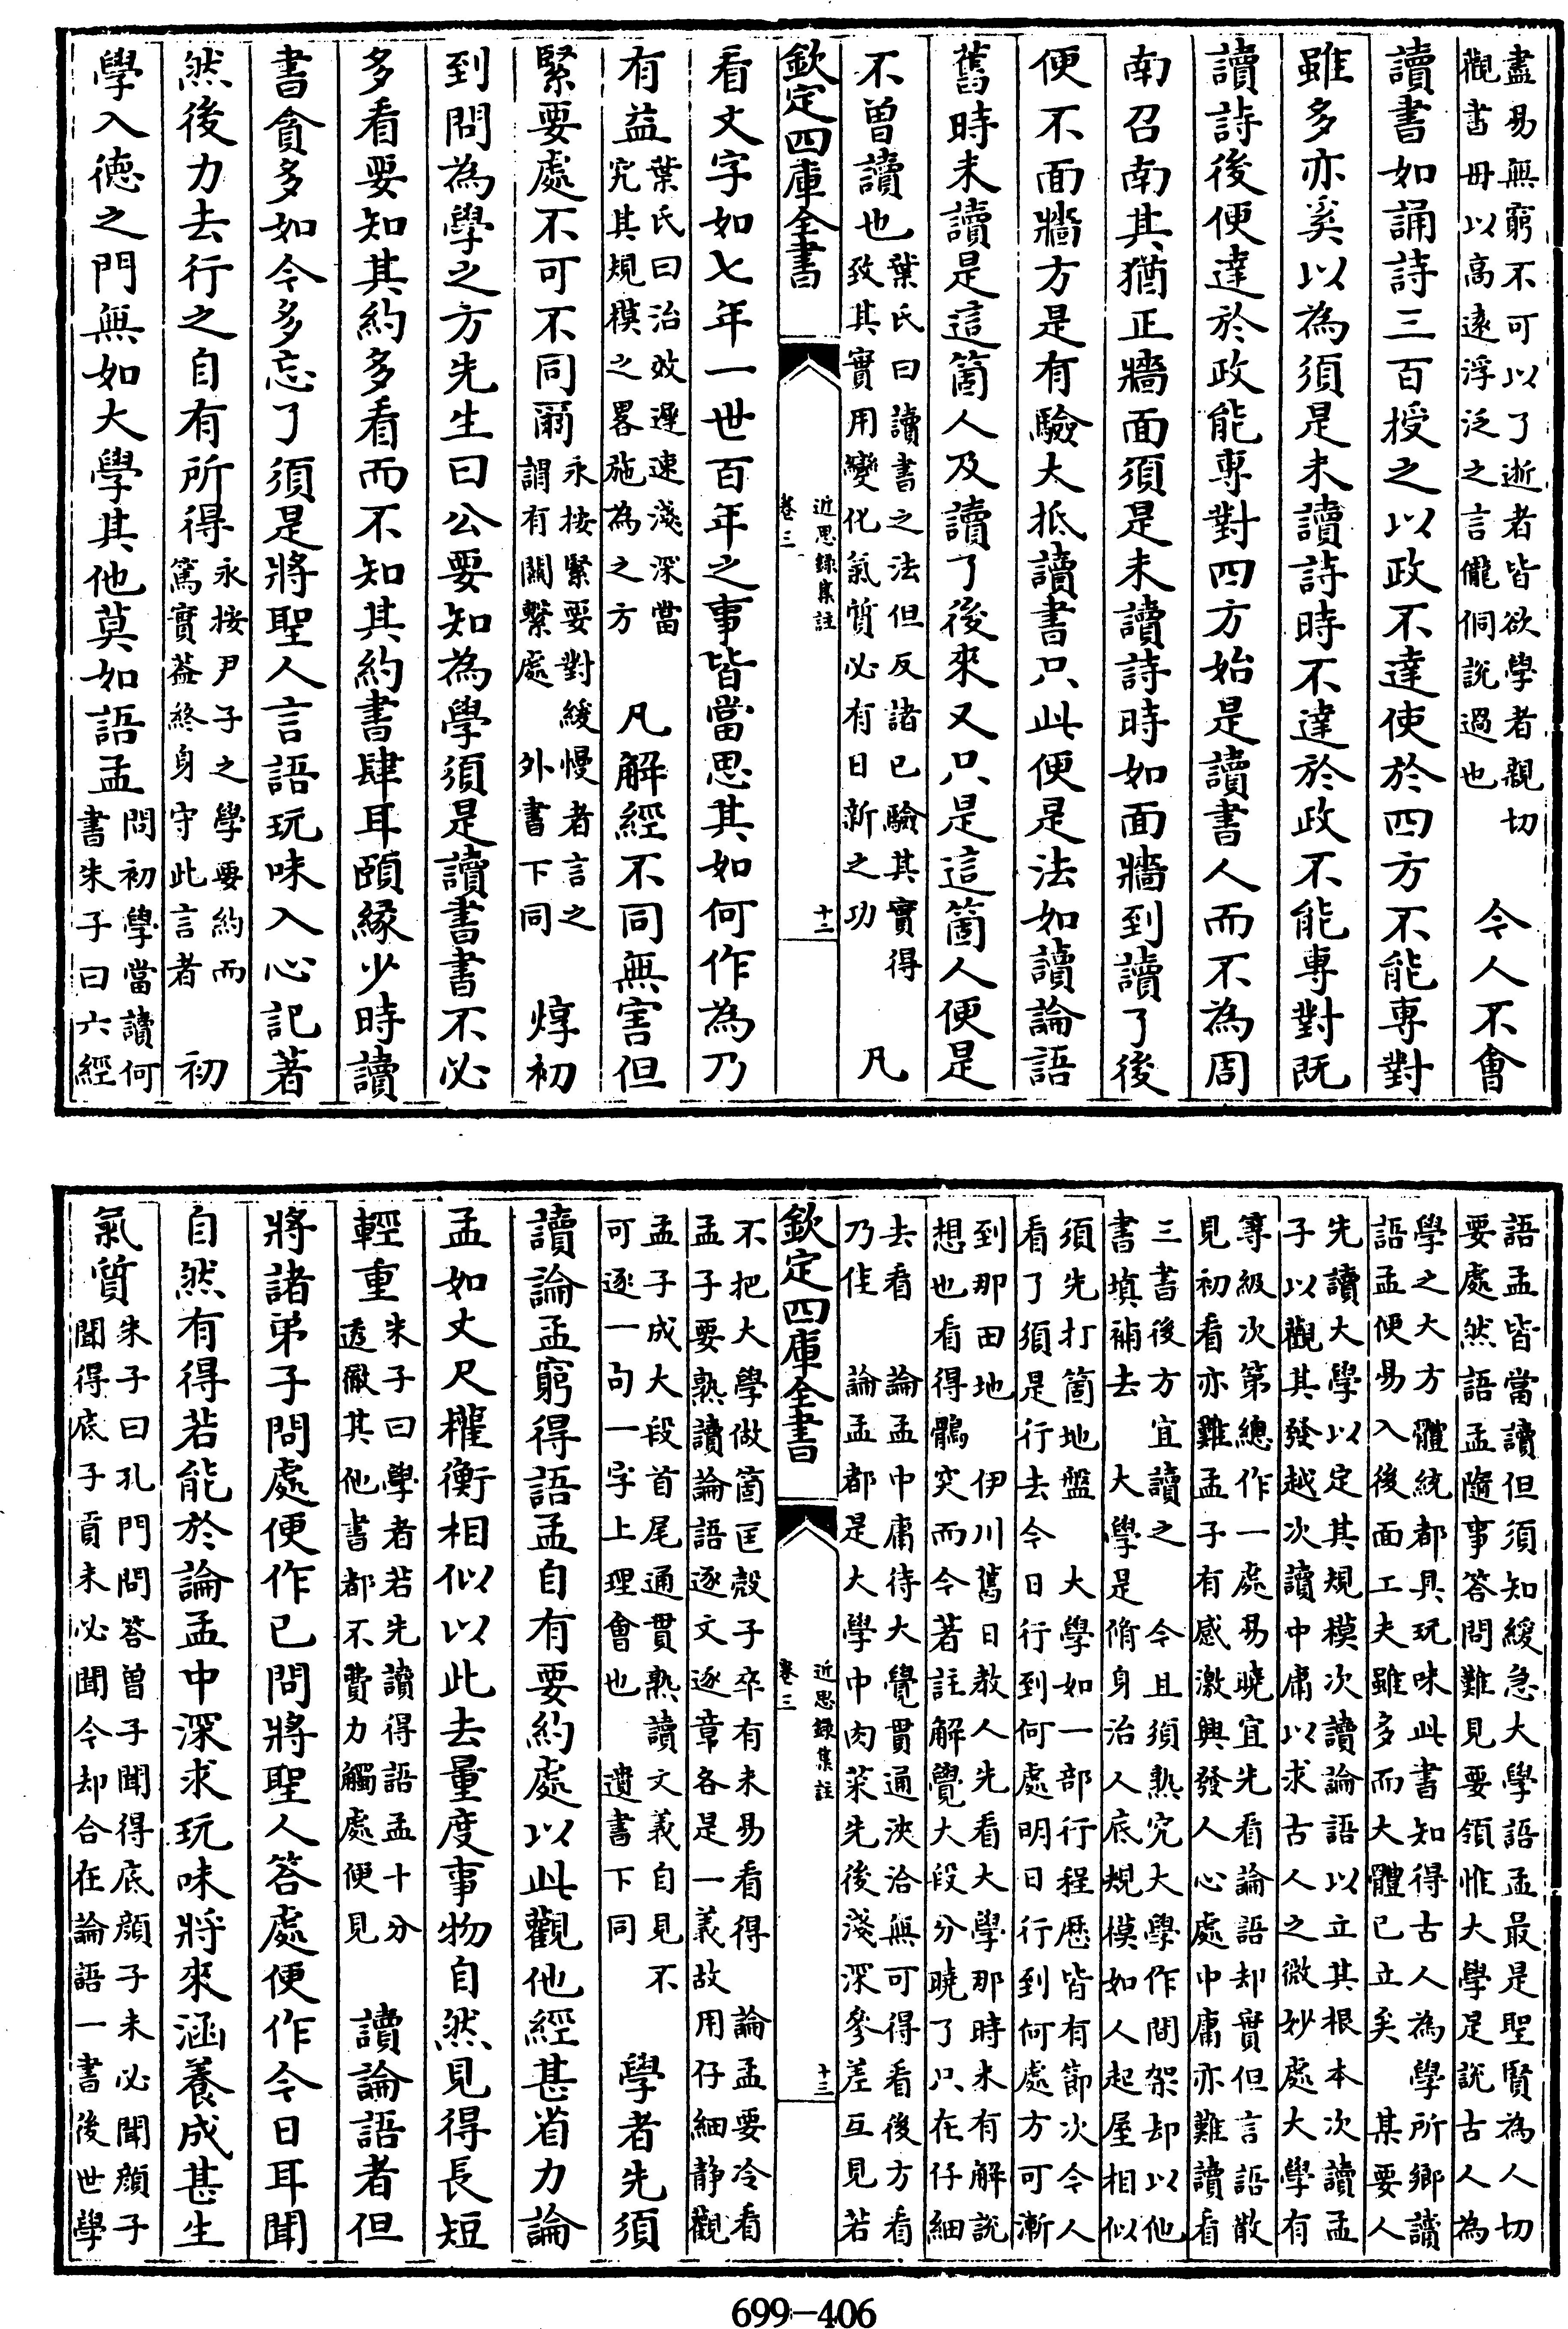 盡易無窮不可以了逝者皆欲學者親切
觀書毋以高遠浮泛之言儱侗說過也
今人不會
讀書如誦詩三百授之以政不達使於四方不能專對
雖多亦奚以為須是未讀詩時不達於政不能專對既
讀詩後便達於政能專對四方始是讀書人而不為周
南召南其猶正牆面須是未讀詩時如面牆到讀了後
便不面牆方是有驗大抵讀書只此便是法如讀論語
舊時未讀是這箇人及讀了後來又只是這箇人便是
不曾讀也
葉氏曰讀書之法但反諸已驗其實得
致其實用變化氣質必有日新之功
凡
欽定四庫全書
近思録集註
卷三
十二
看文字如七年一世百年之事皆當思其如何作為乃
有益
葉氏曰治效遲速淺深當
究其規模之畧施為之方
凡解經不同無害但
緊要處不可不同爾
永按緊要對緩慢者言之
謂有關繫處
外書下同
焞初
到問為學之方先生曰公要知為學須是讀書書不必
多看要知其約多看而不知其約書肆耳頤緣少時讀
書貪多如今多忘了須是將聖人言語玩味入心記著
然後力去行之自有所得
永按尹子之學要約而
篤實葢終身守此言者
初
學入德之門無如大學其他莫如語孟
問初學當讀何
書朱子曰六經
語孟皆當讀但須知緩急大學語孟最是聖賢為人切
要處然語孟隨事答問難見要領惟大學是說古人為
學之大方體統都具玩味此書知得古人為學所鄉讀
語孟便易入後面工夫雖多而大體已立矣 某要人
先讀大學以定其規模次讀論語以立其根本次讀孟
子以觀其發越次讀中庸以求古人之微妙處大學有
等級次第總作一處易曉宜先看論語却實但言語散
見初看亦難孟子有感激興發人心處中庸亦難讀看
三書後方宜讀之 今且須熟究大學作間架却以他
書填補去 大學是脩身治人底規模如人起屋相似
須先打箇地盤 大學如一部行程歷皆有節次今人
看了須是行去今日行到何處明日行到何處方可漸
到那田地 伊川舊日教人先看大學那時未有解說
想也看得鶻突而今著註解覺大段分曉了只在仔細
去看 論孟中庸待大覺貫通浹洽無可得看後方看
乃佳 論孟都是大學中肉菜先後淺深參差互見若
欽定四庫全書
近思録集註
卷三
十三
不把大學做箇匡殼子卒有未易看得 論孟要冷看
孟子要熟讀論語逐文逐章各是一義故用仔細靜觀
孟子成大段首尾通貫熟讀文義自見不
可逐一句一字上理會也
遺書下同
學者先須
讀論孟窮得語孟自有要約處以此觀他經甚省力論
孟如丈尺權衡相似以此去量度事物自然見得長短
輕重
朱子曰學者若先讀得語孟十分
透徹其他書都不費力觸處便見
讀論語者但
將諸弟子問處便作已問將聖人答處便作今日耳聞
自然有得若能於論孟中深求玩味將來涵養成甚生
氣質
朱子曰孔門問答曾子聞得底顏子未必聞顏子
聞得底子貢未必聞今却合在論語一書後世學
699-406